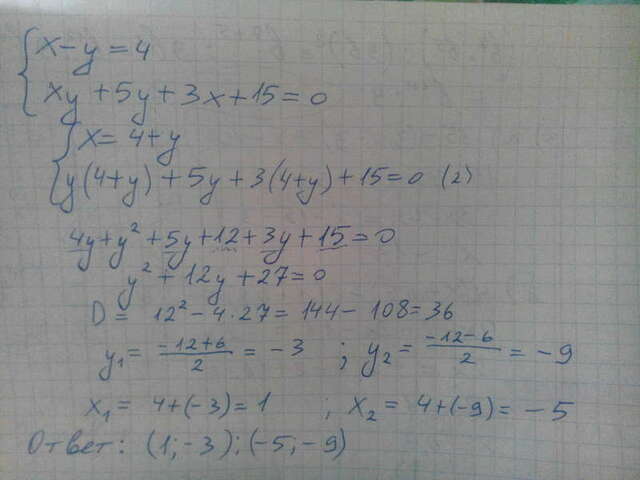 x-y=4
xy+5y+3x+15=0
x=4+y
y(4+y)+5y+3(4+y)+15=0 (2)
4y+y²+5y+12+3y+15=0
y²+12y+27=0
D= 12²-4·27=144-108=36
y₁= (-12+6)/2 = -3 ; y₂= (-12-6)/2 = -9
x₁= 4+(-3)=1 ; x₂= 4+(-9)= -5
Ответ: (1;-3);(-5;-9)